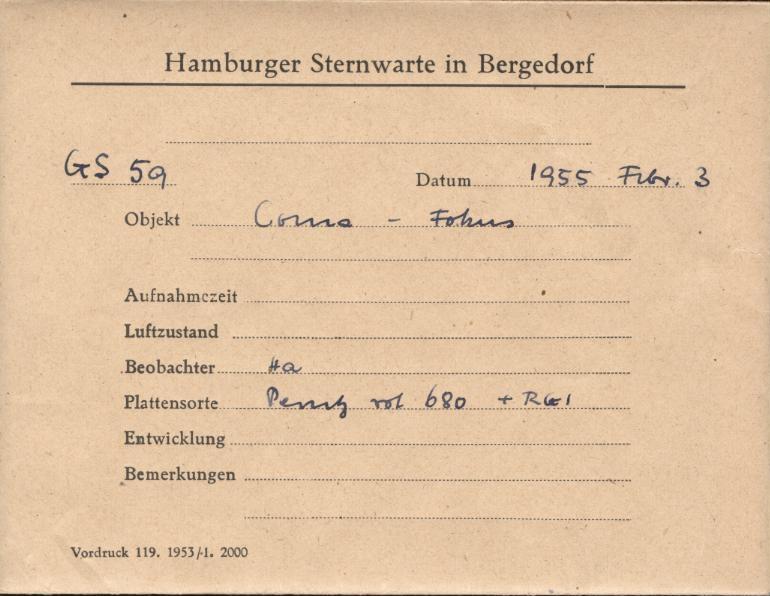 Hamburger Sternwarte in Bergedorf
GS 59 Datum 1955 Febr. 3
Objekt Coma - Fokus
Aufnahmezeit
Luftzustand
Beobachter Ha
Plattensorte Perutz rot 680 + RG1
Entwicklung
Bemerkungen
Vordruck 119. 1953/1. 2000